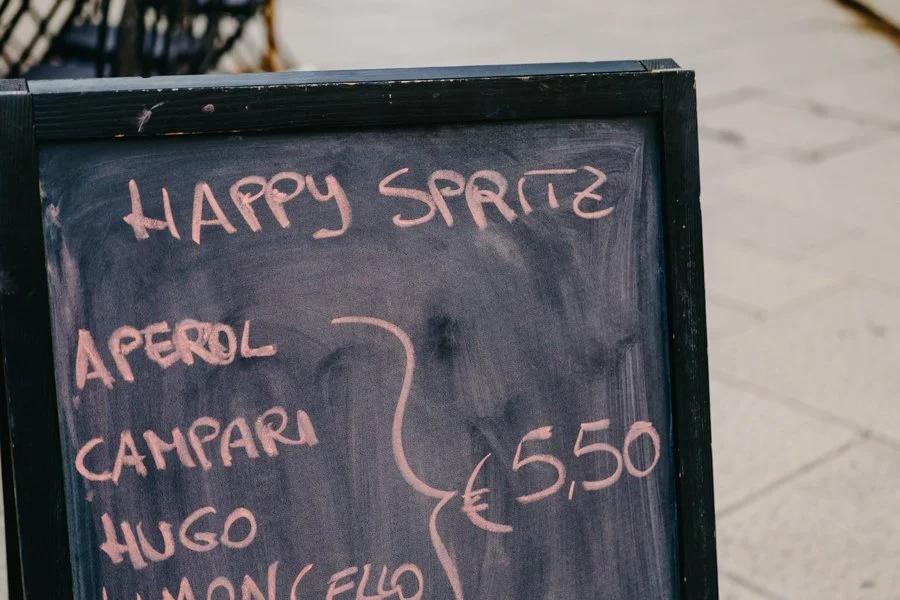 HAPPY SPRITZ
APEROL
CAMPARI
€ 5,50
HUGO
LIMONCELLO